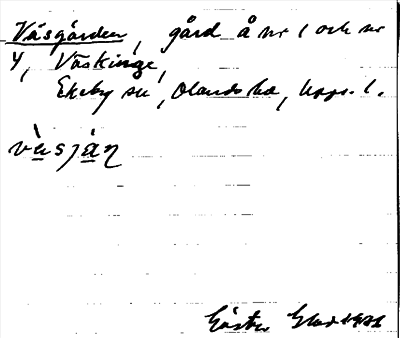 Väsgården, gård å nr 1 och nr
4, Väskinge,
Ekeby sn, Olands hd, Upps. l.
vàsján
Gösta